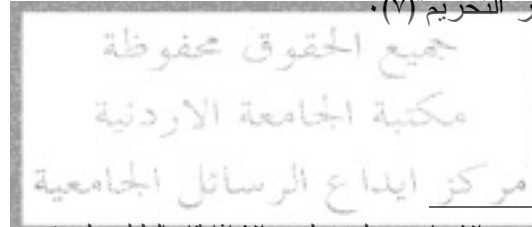 ر التحريم (٧).
جميع الحقوق محفوظة
مكتبة الجامعة الاردنية
مركز ايداع الرسائل الجامعية